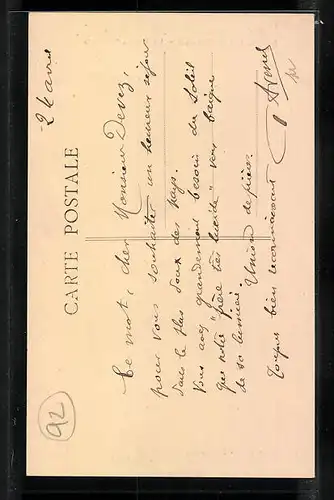 CARTE POSTALE
24 avril
Ce mot, cher Monsieur Devez,
pour vous souhaiter un heureux séjour
dans le plus doux des pays.
Vous avez grandement besoin du Soleil
que notre "frère très lucide" vous baigne
de sa lumière.
Union de prières.
Toujours bien reconnaissant
92